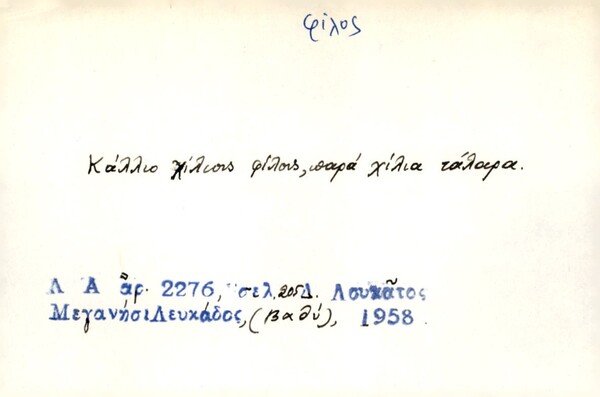 φίλος
Κάλλιο χίλιοις φίλοις, παρά χίλια τάλαρα.
Λ Α ἀρ. 2276, σελ. 205 Δ. Λουκᾶτος
Μεγανήσι Λευκάδος, (Βαθύ), 1958.